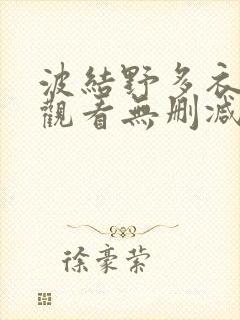 波結野多衣
觀看無刪減
徐豪榮